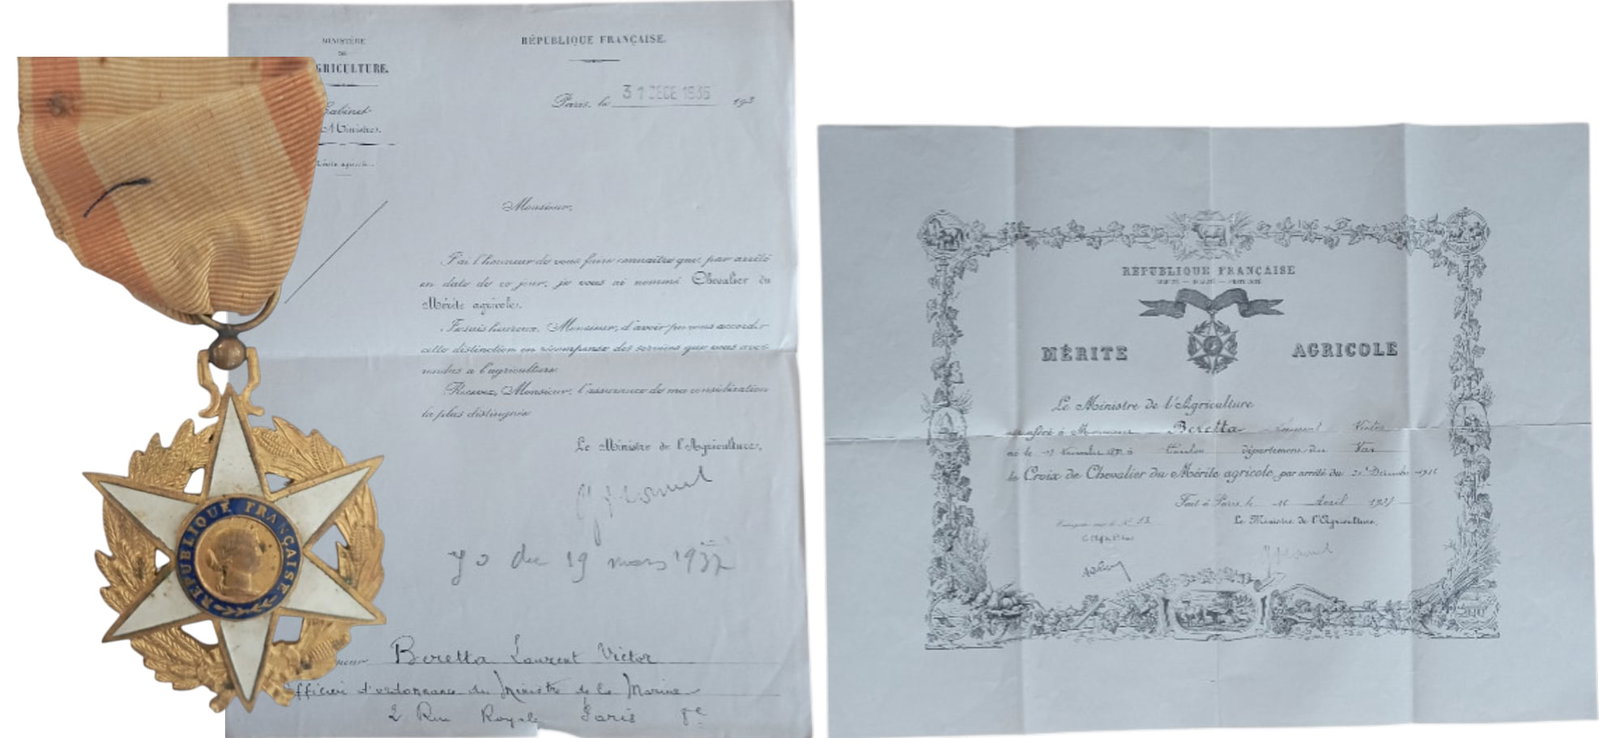 MINISTÈRE
DE
GRICULTURE.
Cabinet
Ministre.
Mérite agricole.
RÉPUBLIQUE FRANÇAISE.
Paris, le 31 DECE 1936 193
Monsieur,
J'ai l'honneur de vous faire connaître que par arrêté
en date de ce jour, je vous ai nommé Chevalier du
Mérite agricole.
Je suis heureux, Monsieur, d'avoir pu vous accorder
cette distinction en récompense des services que vous avez
rendus à l'agriculture.
Recevez, Monsieur, l'assurance de ma considération
la plus distinguée
Le Ministre de l'Agriculture,
JO du 19 mars 1937
Beretta Laurent Victor
officier d'ordonnance du Ministre de la Marine
2 Rue Royale Paris 8e
RÉPUBLIQUE FRANÇAISE
RÉPUBLIQUE FRANÇAISE
MÉRITE AGRICOLE
Le Ministre de l'Agriculture
confère à Monsieur Beretta Laurent Victor
né le Novembre à Toulon département du Var
la Croix de Chevalier du Mérite agricole, par arrêté du 31 Décembre 1936
Fait à Paris le Avril 1937
Le Ministre de l'Agriculture,